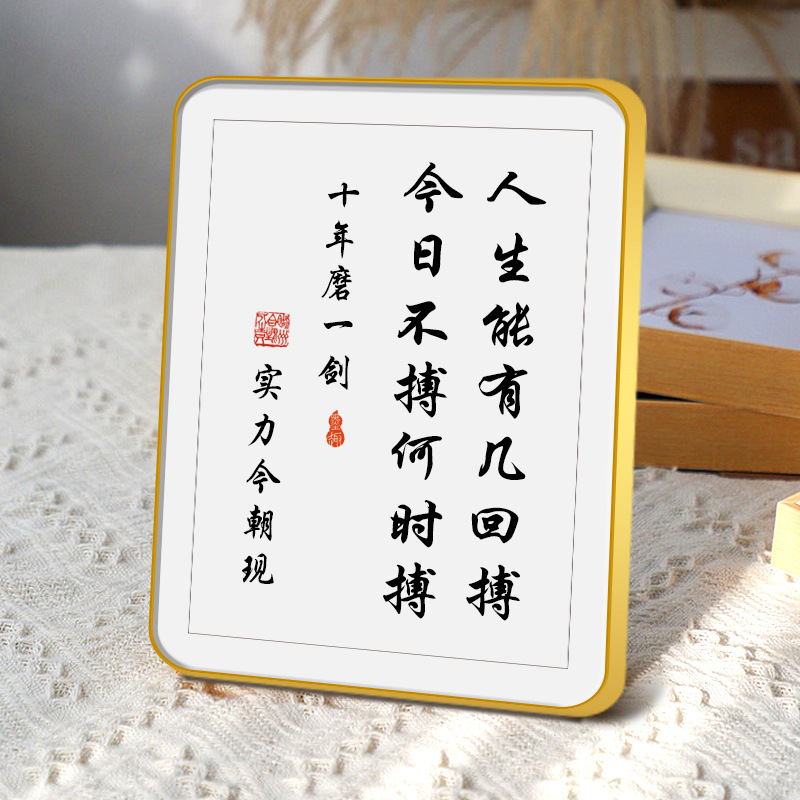 人生能有几回搏
今日不搏何时搏
十年磨一剑
实力今朝现